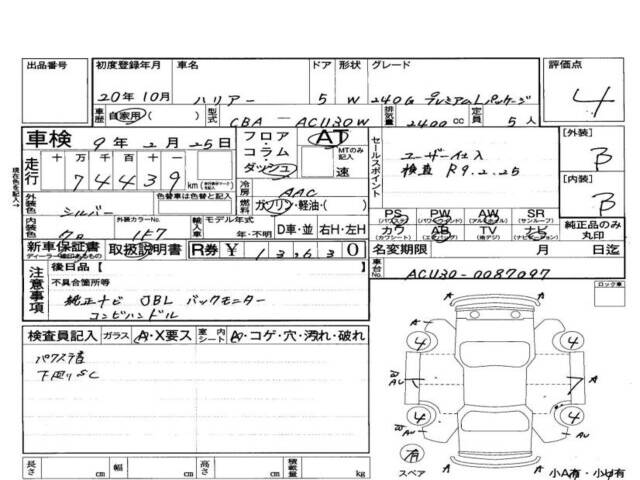 出品番号 初度登録年月 車名 ドア 形状 グレード 評価点
20年10月 ハリアー 5 W 240G プレミアムLパッケージ 4
車歴 自家用( ) 型式 CBA - ACU30W 排気量 2400cc 定員 5人
車検 9年2月25日 フロア・コラム・ダッシュ AT MTのみ記入 速
現在色を記入→
走行 十 万 千 百 十 一
74439 km
冷房 AAC
燃料 ガソリン・軽油・( )
セールスポイント ユーザー仕入
検査 R9.2.25
[外装] B
[内装] B
外装色 シルバー 色替車は色替と記入
内装色 外装カラーNo. 1F7 輸入車 モデル年式 年・不明 D車・並 右H・左H
PS (パワステ) PW (パワーウインド) AW (アルミホイール) SR (サンルーフ)
カワ (カワシート) AB (エアバッグ) TV (地デジ) ナビ (ナビゲーション)
純正品のみ丸印
新車保証書 ディーラー確認印のあるもの 取扱説明書 R券 ¥ 13,630
名変期限 月 日迄
車台No. ACU30-0087097
注意事項 後日品【 】
不具合箇所等
純正ナビ JBL バックモニター
コンビハンドル
ロック車
検査員記入 ガラス A・X要ス 室内シート A・コゲ・穴・汚れ・破れ
下廻りSC
A A
4 4
A A
4 4
有
スペア
小A有・小U有
長さ cm 幅 cm 高さ cm 積載量 kg